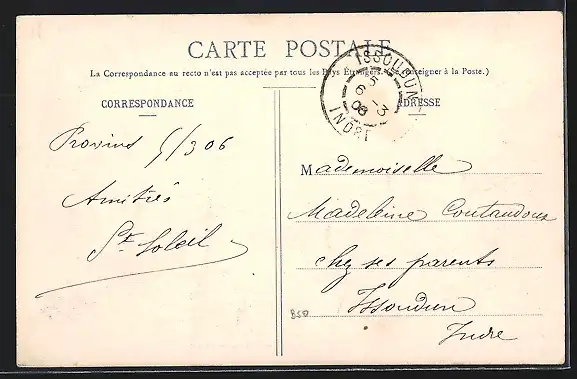 CARTE POSTALE
La Correspondance au recto n'est pas acceptée par tous les Pays Étrangers. (Se renseigner à la Poste.)
CORRESPONDANCE
ADRESSE
ISSOUDUN
6 06
INDRE
Provins 5/3 06
Amitiés
St Soleil
Mademoiselle
Madeleine
chez ses parents
Issoudun
Indre